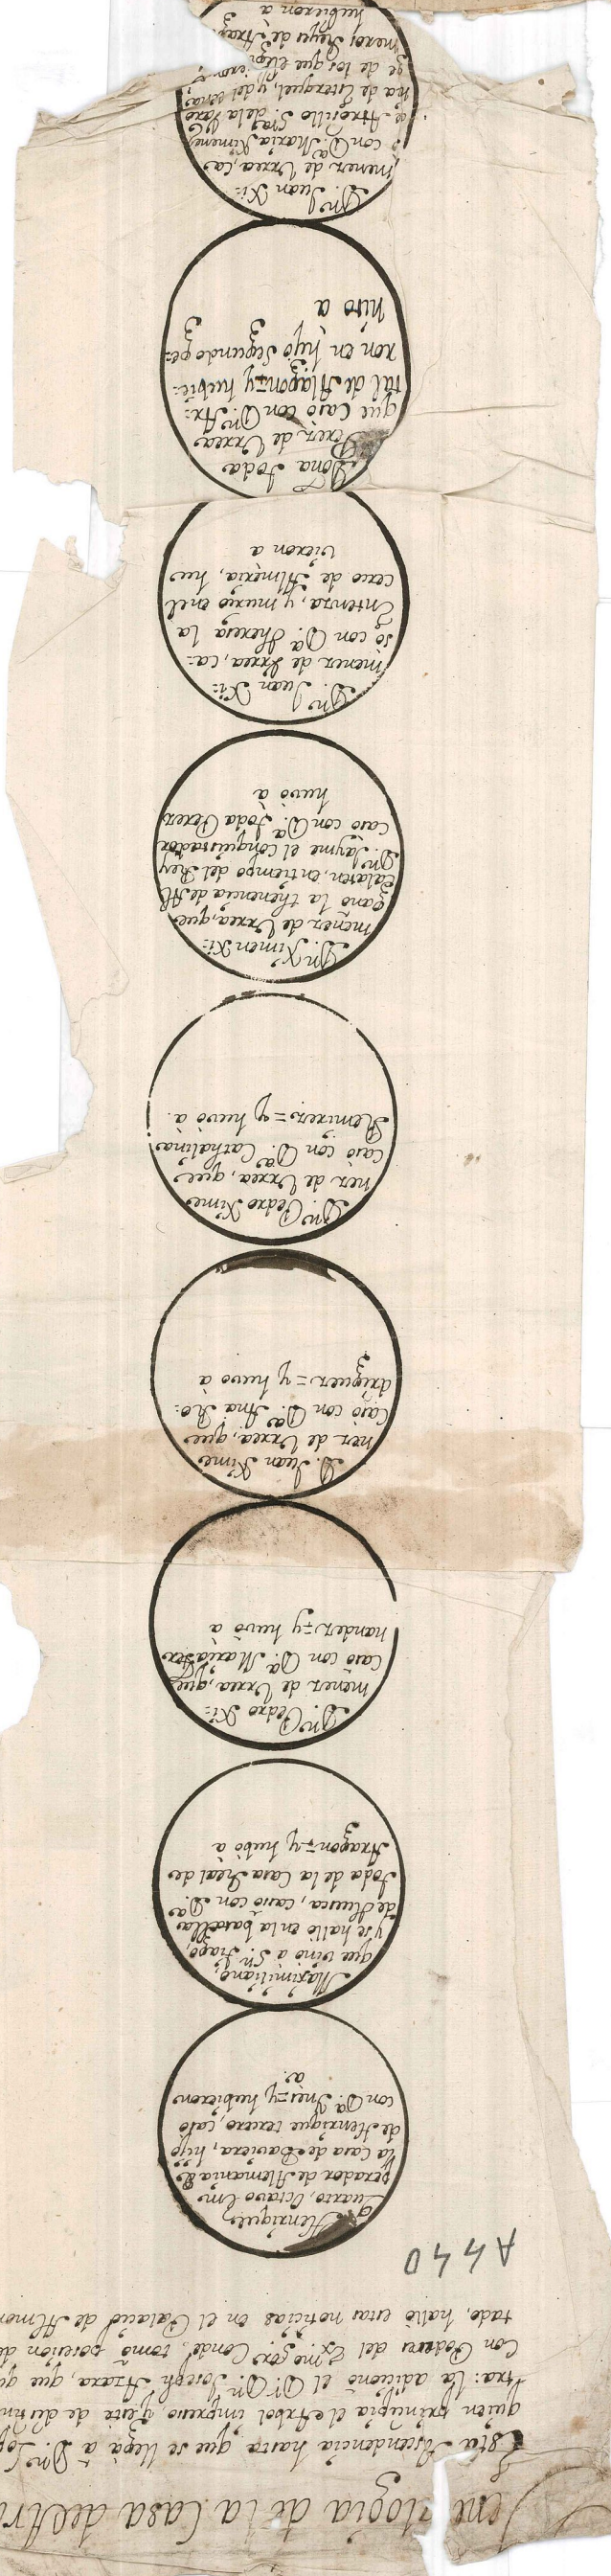 Genealogia de la Casa de
Esta Ascendencia hasta que se llega à Dn. Lop
quien principia el Arbol impresso, y esta de distin
tra: la adicionó el Dr. Dn. Joseph Azara, que
Con Poderes del Exmo. Sor. Conde, tomó posesion de
tado, hallò estas noticias en el Palacio de Almon
A 440
Henrique
Quarto, Octavo Em
perador de Alemania de
la Casa de Baviera, hijo
de Henrique tercero, casò
con Da. Ines = y hubieron
a.
Maximiliano,
que vino a Sn. Tiago,
y se hallò en la batalla
de Huesca, casò con Da.
Toda de la Casa Real de
Aragon = y hubò à
Dn. Pedro Xi:
menez de Urrea, que
casò con Da. Maria Fer
nandez = y huvò à
D. Juan Xime
nez de Urrea, que
Casò con Da. Ana Ro:
driguez = y huvò à
Dn. Pedro Xime
nez de Urrea, que
casò con Da. Cathalina
Remirez = y huvò à.
Dn. Ximen Xi:
menez de Urrea, que
Ganò la thenencia de Al
Calaten, en tiempo del Rey
Dn. Jayme el Conquistador
casò con Da. Toda Perez
huvò à
Dn. Juan Xi:
menez de Urrea, ca:
sò con Da. Theresa la
Entenza, y murio en el
cerco de Almeria, hu
vieron a
Doña Toda
Perez de Urrea
que Casò con Dn. Ar:
tal de Alagon = y hubie:
ron en hijo Segundo ge:
nito a
Dn. Juan Xi:
menez de Urrea, ca
sò con Da. Maria Ximenez
de Arenillo Sra. de la Varo
nia de Estercuel, y del
ge de los que eligieron
meros Reyes de Arag
hubieron à